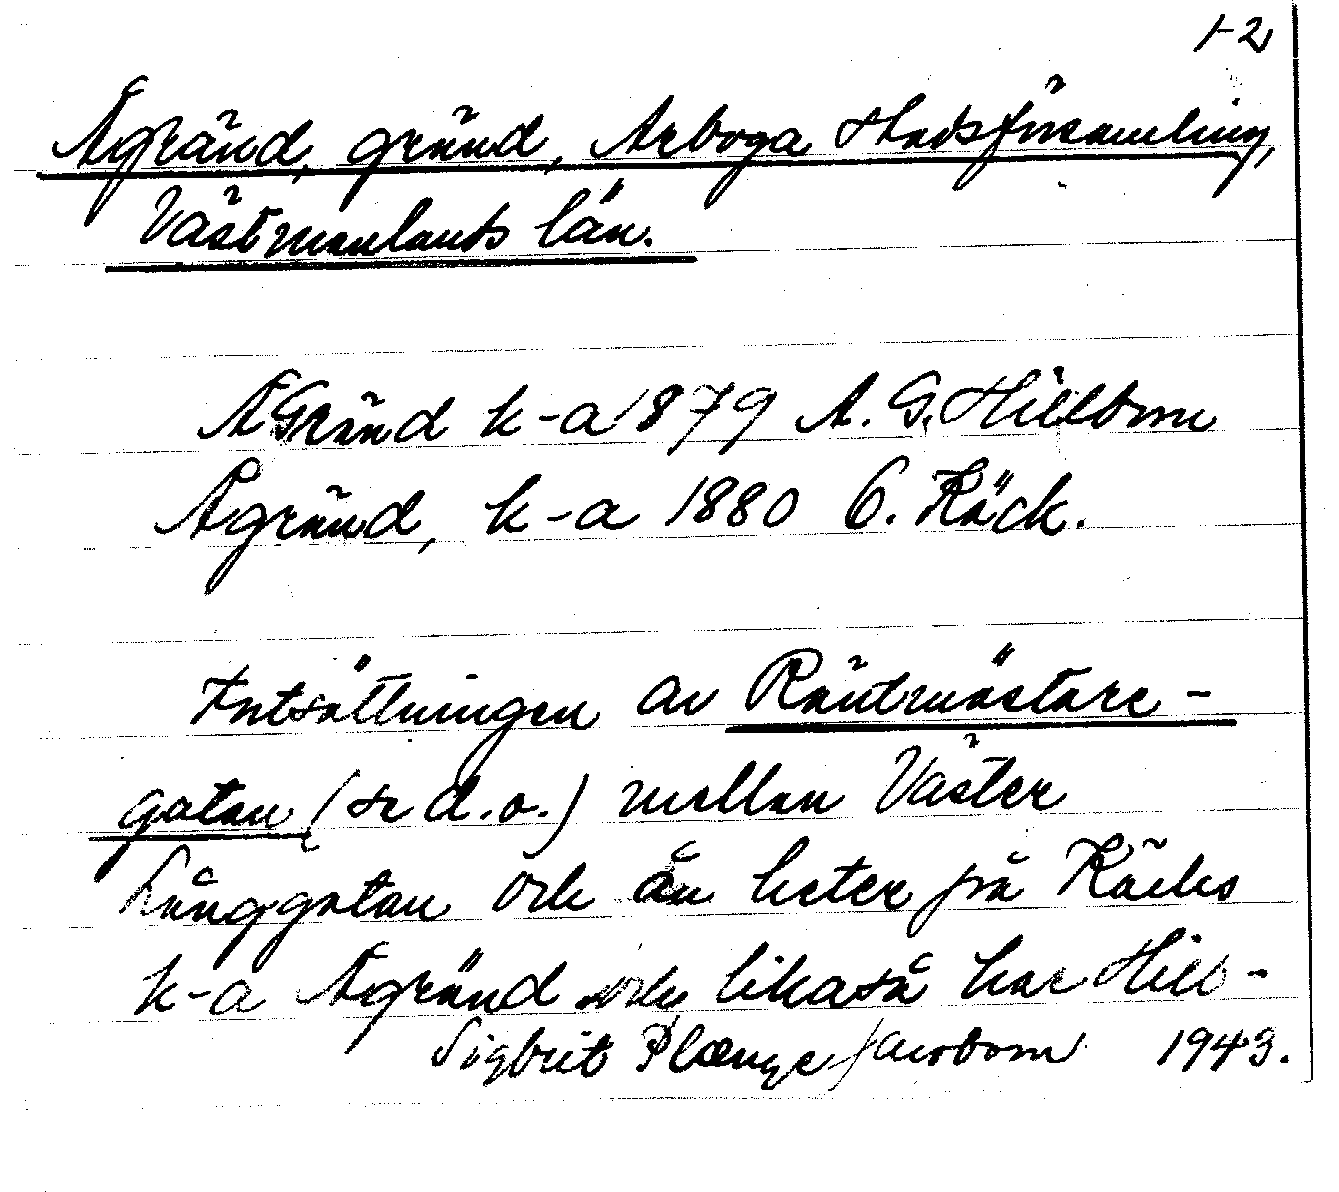 1-2
Ågränd, gränd, Arboga stadsförsamling,
Västmanlands län.
ÅGränd k-a 1879 A. G. Hillbom
Ågränd, k-a 1880 C. Räck.
Fortsättningen av Räntmästare-
gatan (se d.o.) mellan Väster
Långgatan och ån heter på Räcks
k-a Ågränd och likaså har Hill-
Sigbrit Plænge Jacobson 1943.